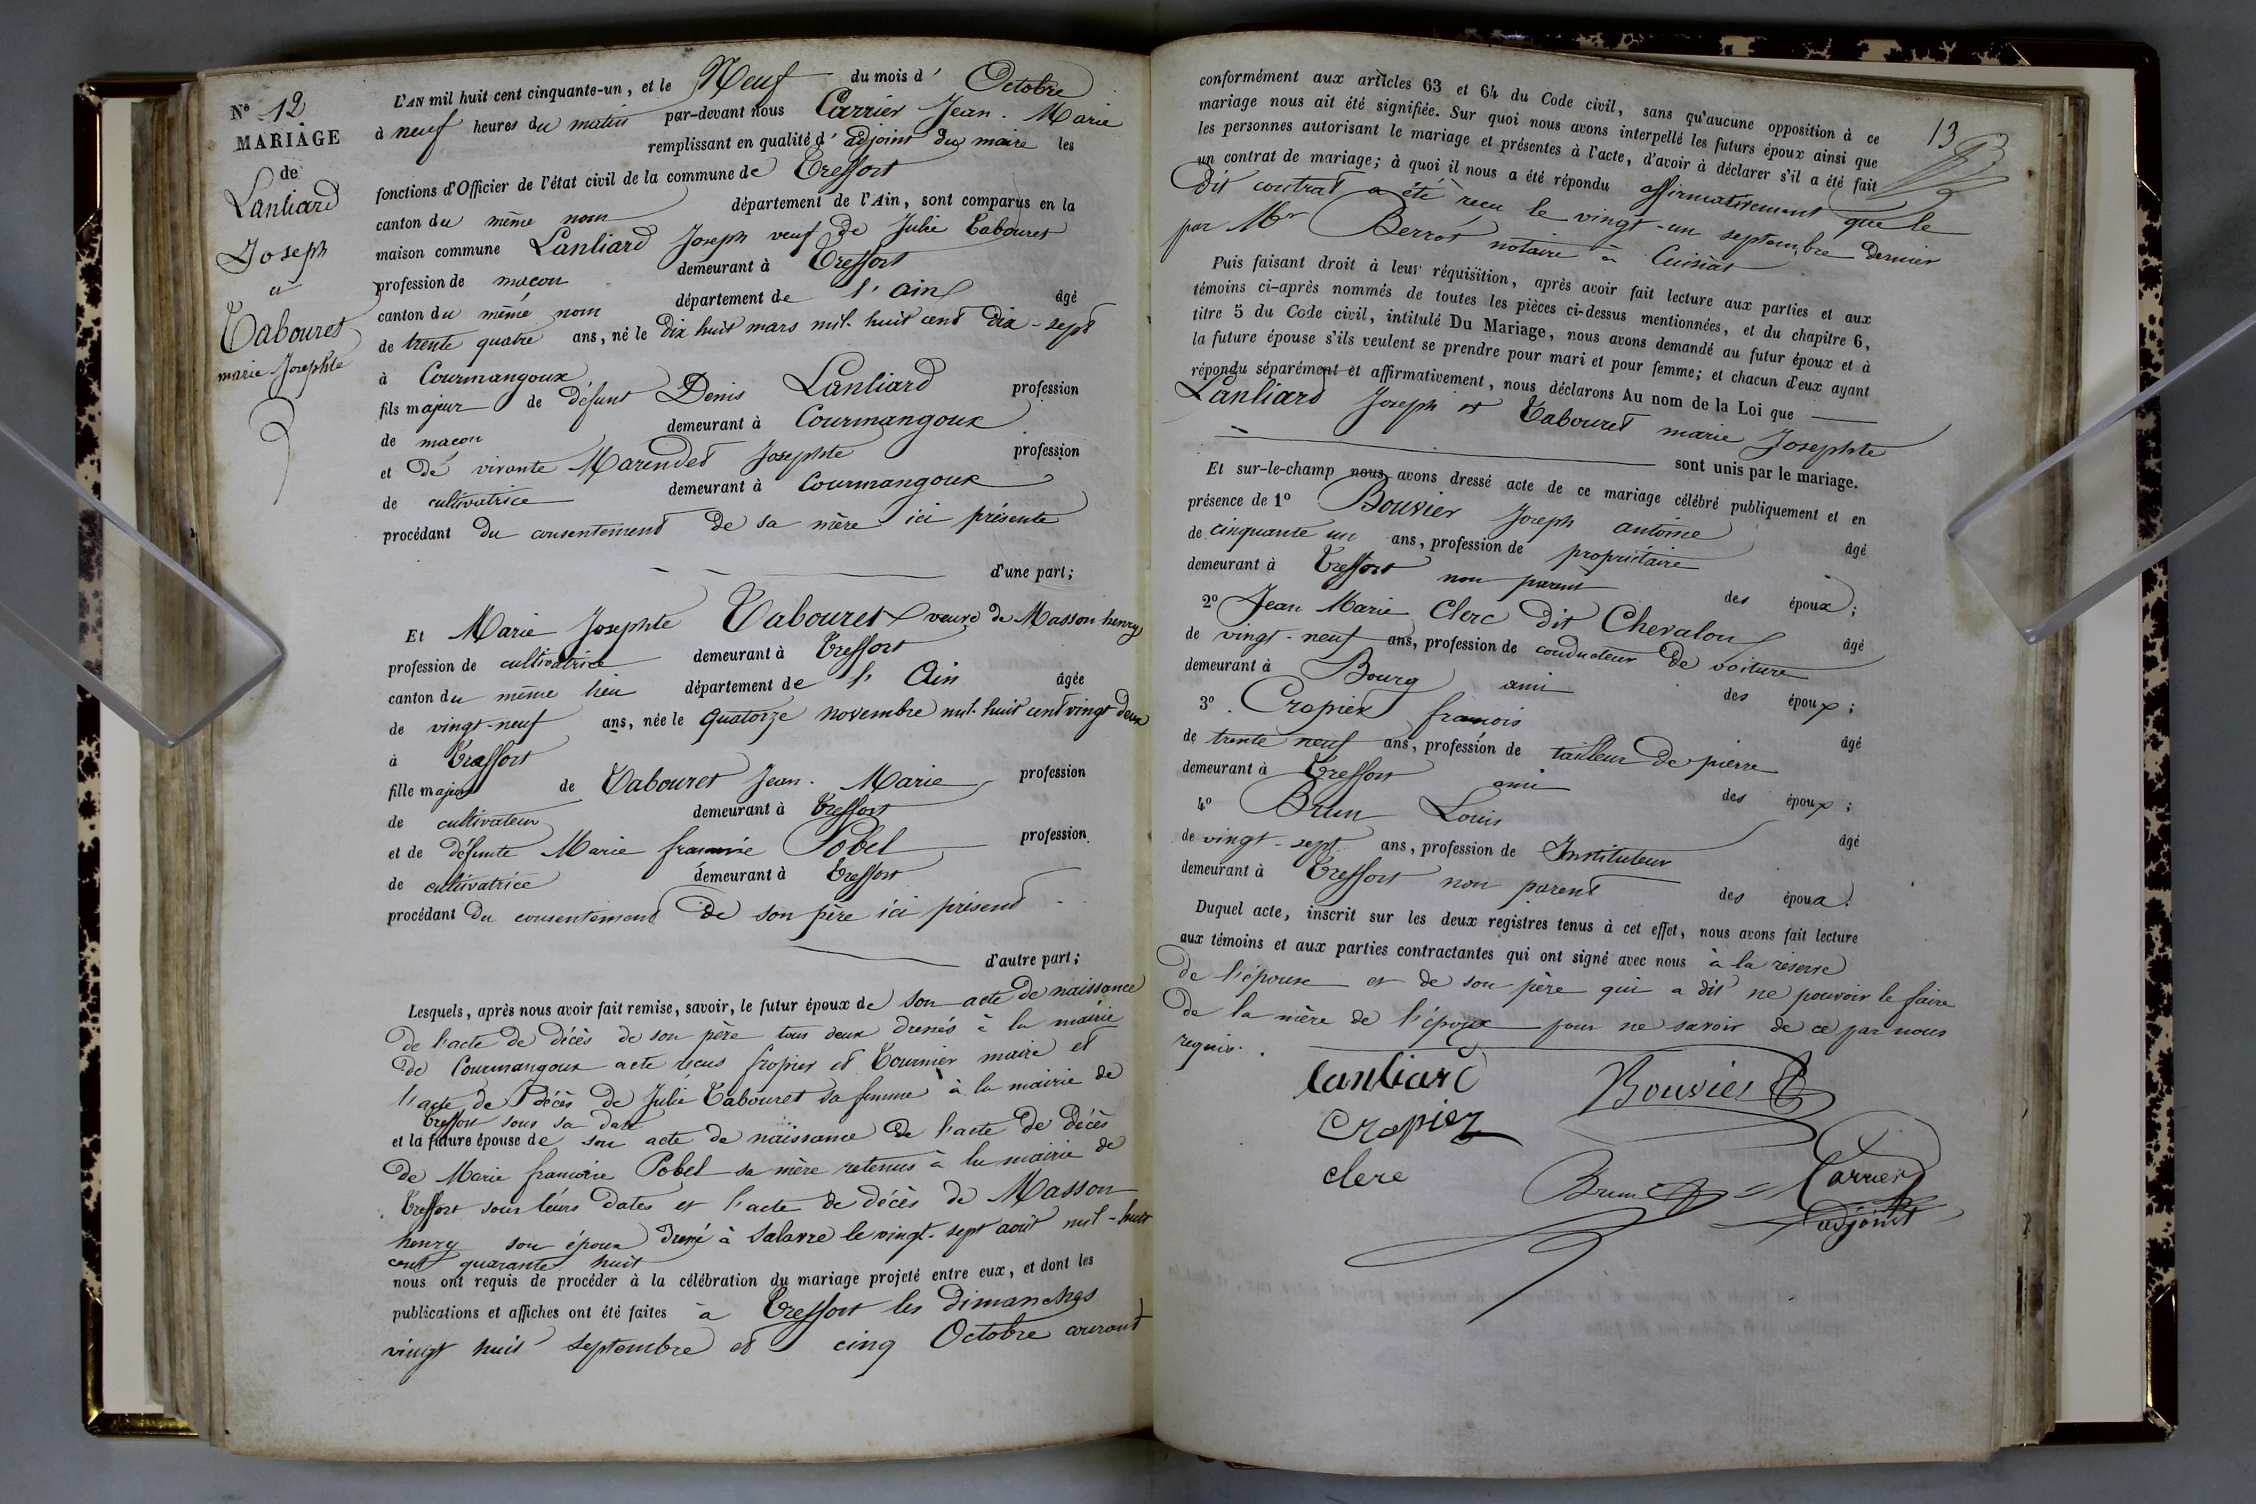 N° 12
MARIAGE
de
Lanliard
Joseph
et
Tabouret
marie Josephte
L'AN mil huit cent cinquante-un, et le Neuf du mois d' Octobre
à neuf heures du matin par-devant nous Carrier Jean-Marie
remplissant en qualité d'adjoint du maire les
fonctions d'Officier de l'état civil de la commune de Treffort
canton du même nom département de l'Ain, sont comparus en la
maison commune Lanliard Joseph veuf de Julie Tabouret
profession de maçon demeurant à Treffort
canton du même nom département de l'Ain âgé
de trente quatre ans, né le dix huit mars mil-huit cent dix-sept
à Courmangoux
fils majeur de défunt Denis Lanliard profession
de maçon demeurant à Courmangoux
et de vivante Marendet Josephte profession
de cultivatrice demeurant à Courmangoux
procédant du consentement de sa mère ici présente
d'une part;
Et Marie Josephte Tabouret veuve de Masson henry
profession de cultivatrice demeurant à Treffort
canton du même lieu département de l'Ain âgée
de vingt-neuf ans, née le quatorze novembre mil-huit cent vingt deux
à Treffort
fille majeur de Tabouret Jean-Marie profession
de cultivateur demeurant à Treffort
et de défunte Marie Pobel profession
de cultivatrice demeurant à Treffort
procédant du consentement de son père ici présent
d'autre part;
Lesquels, après nous avoir fait remise, savoir, le futur époux de son acte de naissance
de l'acte de décès de son père tous deux dressés à la mairie
de Courmangoux acte recus et Tournier maire et
l'acte de décès de Julie Tabouret sa femme à la mairie de
Treffort sous sa date
et la future épouse de son acte de naissance de l'acte de décès
de Marie Pobel sa mère retenus à la mairie de
Treffort sous leurs dates et l'acte de décès de Masson
henry son époux dressé à Salavre le vingt-sept août mil-huit
cent quarante huit
nous ont requis de procéder à la célébration du mariage projeté entre eux, et dont les
publications et affiches ont été faites à Treffort les dimanches
vingt huit septembre et cinq Octobre courant
13
conformément aux articles 63 et 64 du Code civil, sans qu'aucune opposition à ce
mariage nous ait été signifiée. Sur quoi nous avons interpellé les futurs époux ainsi que
les personnes autorisant le mariage et présentes à l'acte, d'avoir à déclarer s'il a été fait
un contrat de mariage; à quoi il nous a été répondu affirmativement que le
dit contrat a été reçu le vingt-un septembre dernier
par Mr Berrot notaire à Cuisiat
Puis faisant droit à leur réquisition, après avoir fait lecture aux parties et aux
témoins ci-après nommés de toutes les pièces ci-dessus mentionnées, et du chapitre 6,
titre 5 du Code civil, intitulé Du Mariage, nous avons demandé au futur époux et à
la future épouse s'ils veulent se prendre pour mari et pour femme; et chacun d'eux ayant
répondu séparément et affirmativement, nous déclarons Au nom de la Loi que
Lanliard Joseph et Tabouret marie Josephte
sont unis par le mariage.
Et sur-le-champ nous avons dressé acte de ce mariage célébré publiquement et en
présence de 1° Bouvier Joseph antoine âgé
de cinquante un ans, profession de propriétaire
demeurant à Treffort non parent des époux;
2° Jean Marie Clerc dit Chevalon âgé
de vingt-neuf ans, profession de conducteur de voiture
demeurant à Bourg ami des époux;
3° Cropier françois âgé
de trente neuf ans, profession de tailleur de pierre
demeurant à Treffort ami des époux;
4° Brun Louis âgé
de vingt-sept ans, profession de Instituteur
demeurant à Treffort non parent des époux.
Duquel acte, inscrit sur les deux registres tenus à cet effet, nous avons fait lecture
aux témoins et aux parties contractantes qui ont signé avec nous à la réserve
de l'épouse et de son père qui a dit ne pouvoir le faire
de la mère de l'époux pour ne savoir de ce par nous
requis.
Lanliard
Bouvier
Cropier
clerc
Brun
Carrier
adjoint